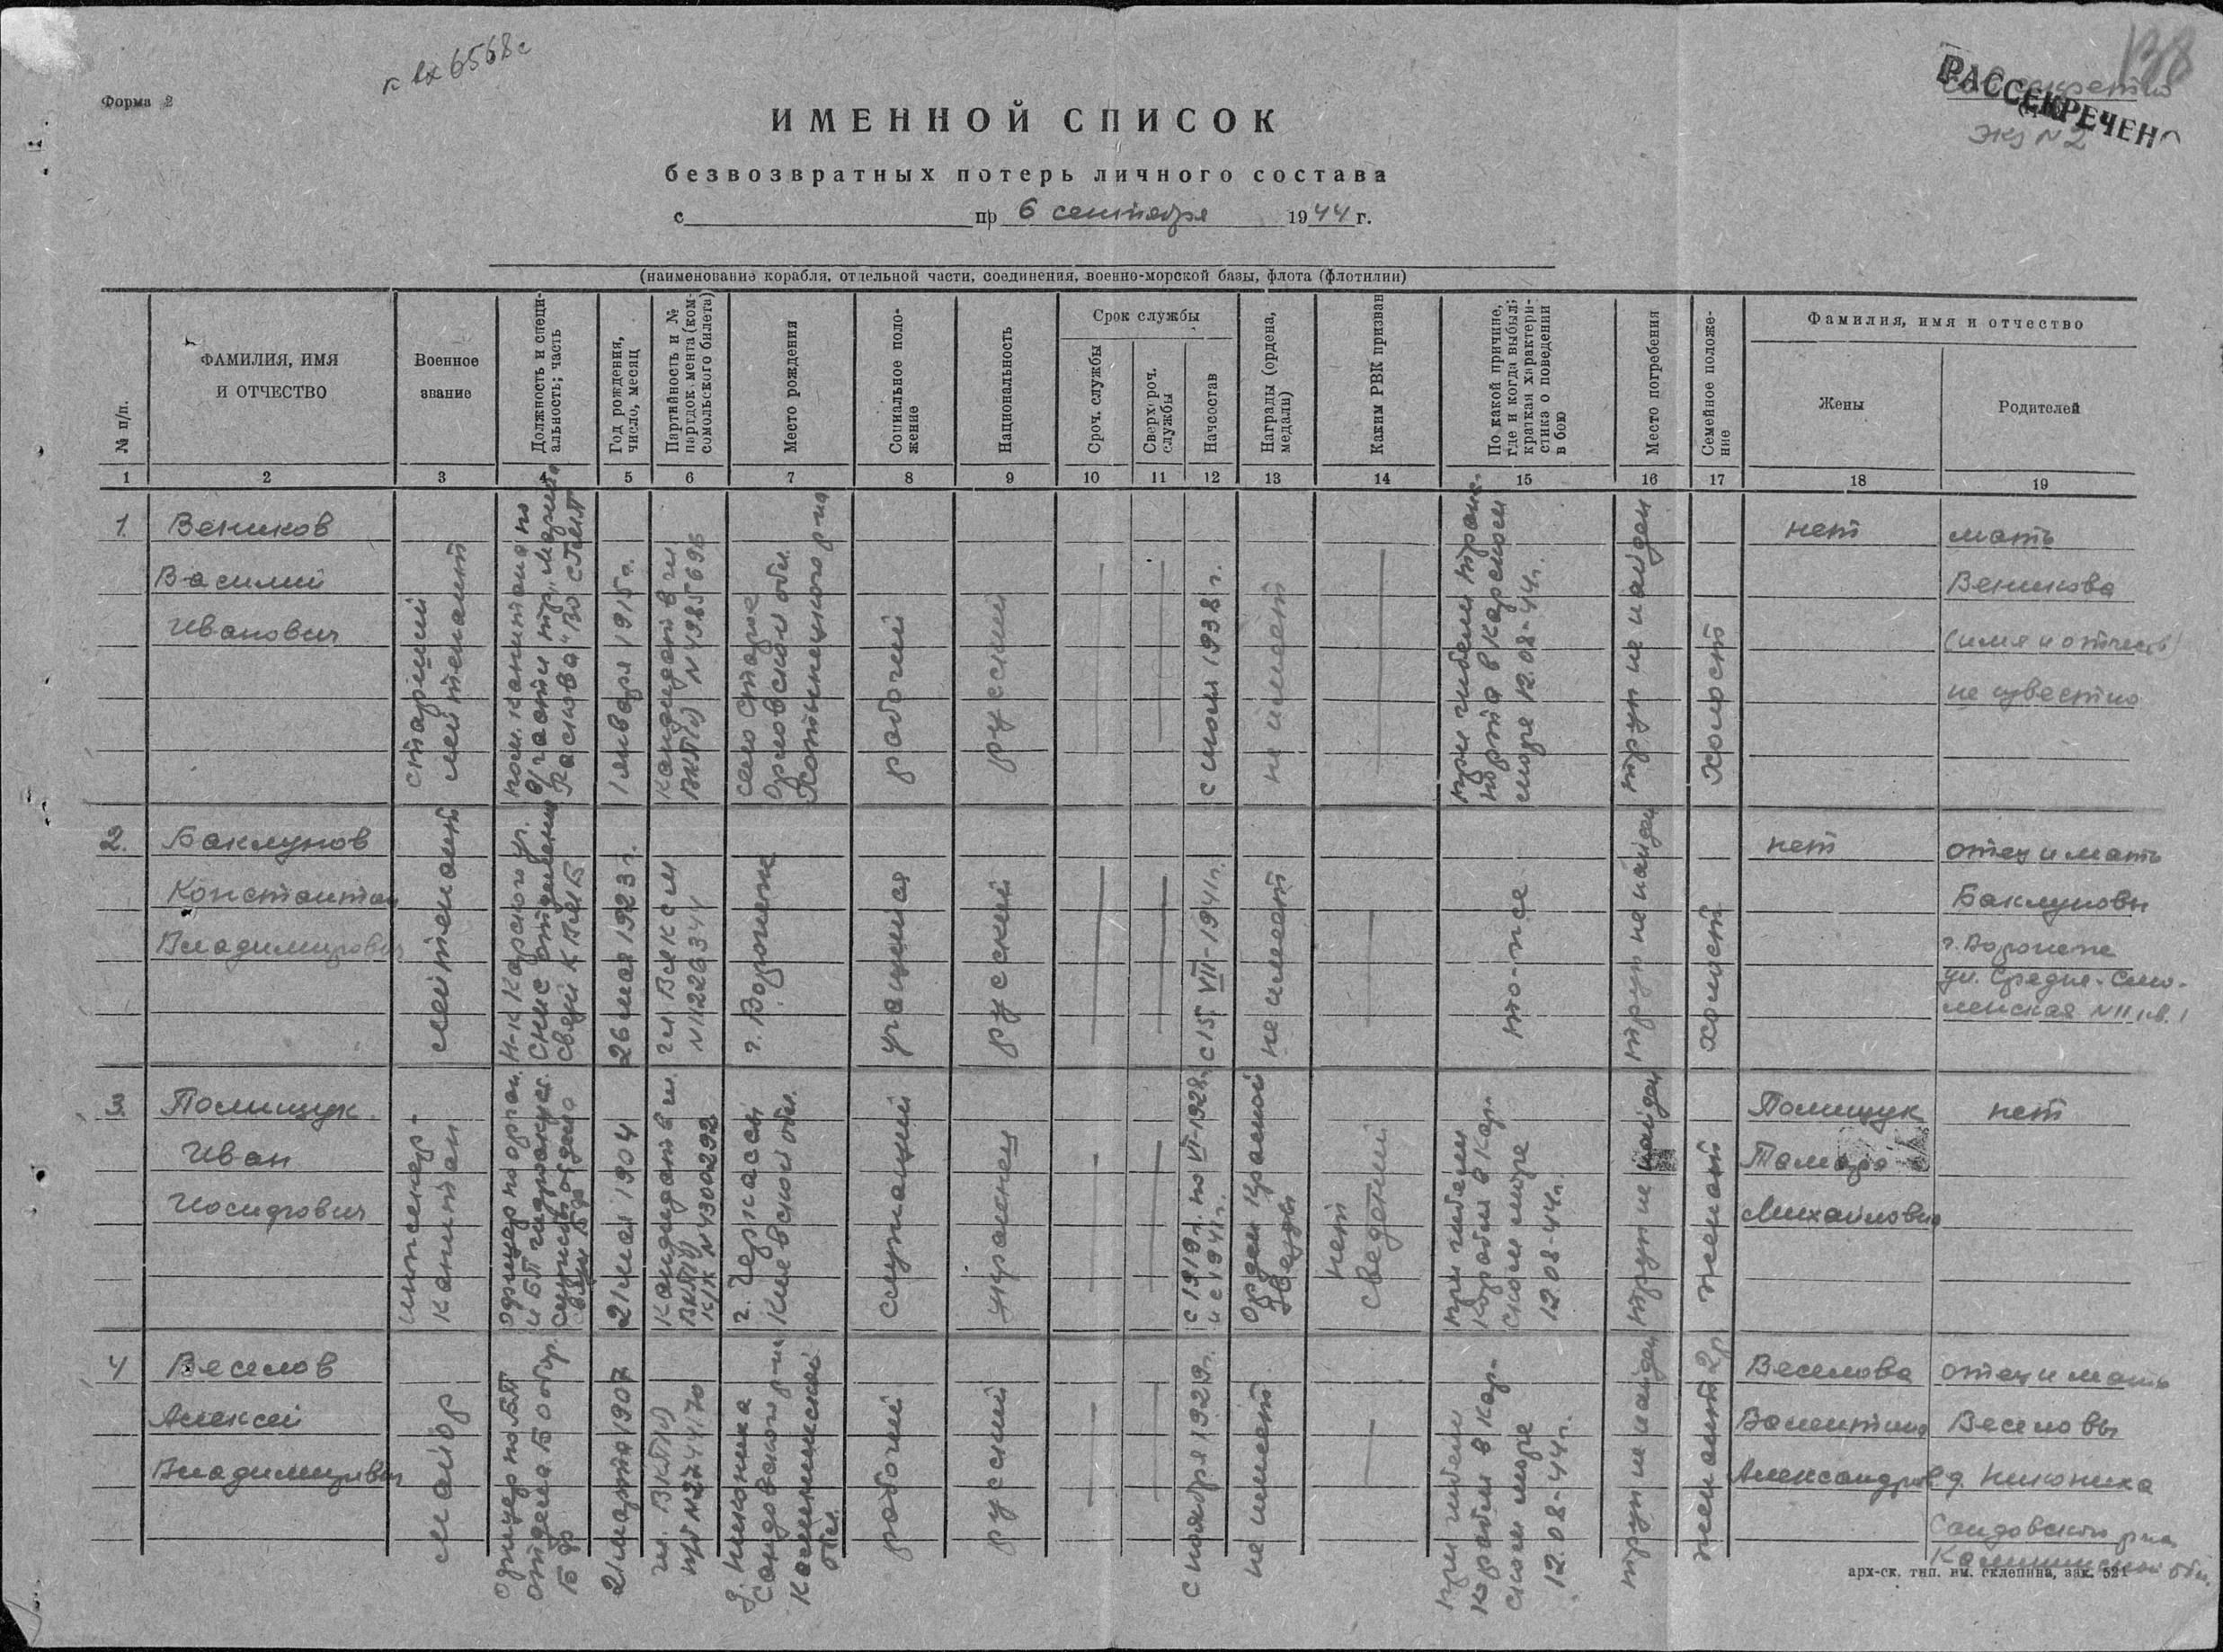 к вх 6568с
138
Форма 2
Сов. секретно
РАССЕКРЕЧЕНО
экз N 2
ИМЕННОЙ СПИСОК
безвозвратных потерь личного состава
с пр 6 сентября 1944 г.
(наименование корабля, отдельной части, соединения, военно-морской базы, флота (флотилии)
№ п/п.
ФАМИЛИЯ, ИМЯ
И ОТЧЕСТВО
Военное
звание
Должность и специ-
альность; часть
Год рождения,
число, месяц
Партийность и №
партдокумента (ком-
сомольского билета)
Место рождения
Социальное поло-
жение
Национальность
Срок службы
Сроч. службы
Сверхсроч.
службы
Начсостав
Награды (ордена,
медали)
Каким РВК призван
По какой причине,
где и когда выбыл;
краткая характери-
стика о поведении
в бою
Место погребения
Семейное положе-
ние
Фамилия, имя и отчество
Жены
Родителей
1 2 3 4 5 6 7 8 9 10 11 12 13 14 15 16 17 18 19
1.
Веников
Василий
Иванович
старший
лейтенант
пом. капитана по
в/части тр. „Марина
Раскова" ВО СГМП
1 января 1915 г.
Кандидат в чл.
ВКП(б) N 4985696
село Старое
Орловской обл.
Хотынецкого р-на
рабочий
русский
с июля 1938 г.
не имеет
при гибели транс-
порта в Карском
море 12.08-44г.
труп не найден
холост
нет
мать
Веникова
(имя и отчеств)
не известно
2.
Баклунов
Константин
Владимирович
лейтенант
Н-к Карского уч.
СНиС отделения
связи КВМБ
26 мая 1923 г.
чл ВЛКСМ
N 11226344
г. Воронеж
учащийся
русский
с 15. VII-1941г.
не имеет
то-же
труп не найден
холост
нет
отец и мать
Баклуновы
г. Воронеж
ул. Средне-Смо-
ленская N 11 кв. 1
3
Полищук
Иван
Иосифович
инженер-
капитан
офицер по орган.
и БП гидроакуст.
службы отдела
21 мая 1904
Кандидат в чл.
ВКП(б)
К/К N 4300292
г. Черкассы
Киевской обл.
служащий
украинец
с 1919 г. по VI-1928
и с 1941г.
Орден Красной
Звезды
нет
сведений
при гибели
корабля в Кар-
ском море
12.08-44г.
труп не найден
женат
Полищук
Тамара
Михайловна
нет
4
Веселов
Алексей
Владимирович
майор
офицер по БП
отдела Б. обор.
21 марта 1907
чл. ВКП(б)
п/б N 2744170
д. Никониха
Сандовского р-на
Калининской
обл.
рабочий
русский
с ноября 1929г.
не имеет
при гибели
корабля в Кар-
ском море
12.08-44г.
труп не найден
женат 2 р.
Веселова
Валентина
Александров.
отец и мать
Веселовы
д. Никониха
Сандовского р-на
Калининской обл.
арх-ск. тип. им. склепина, зак. 521